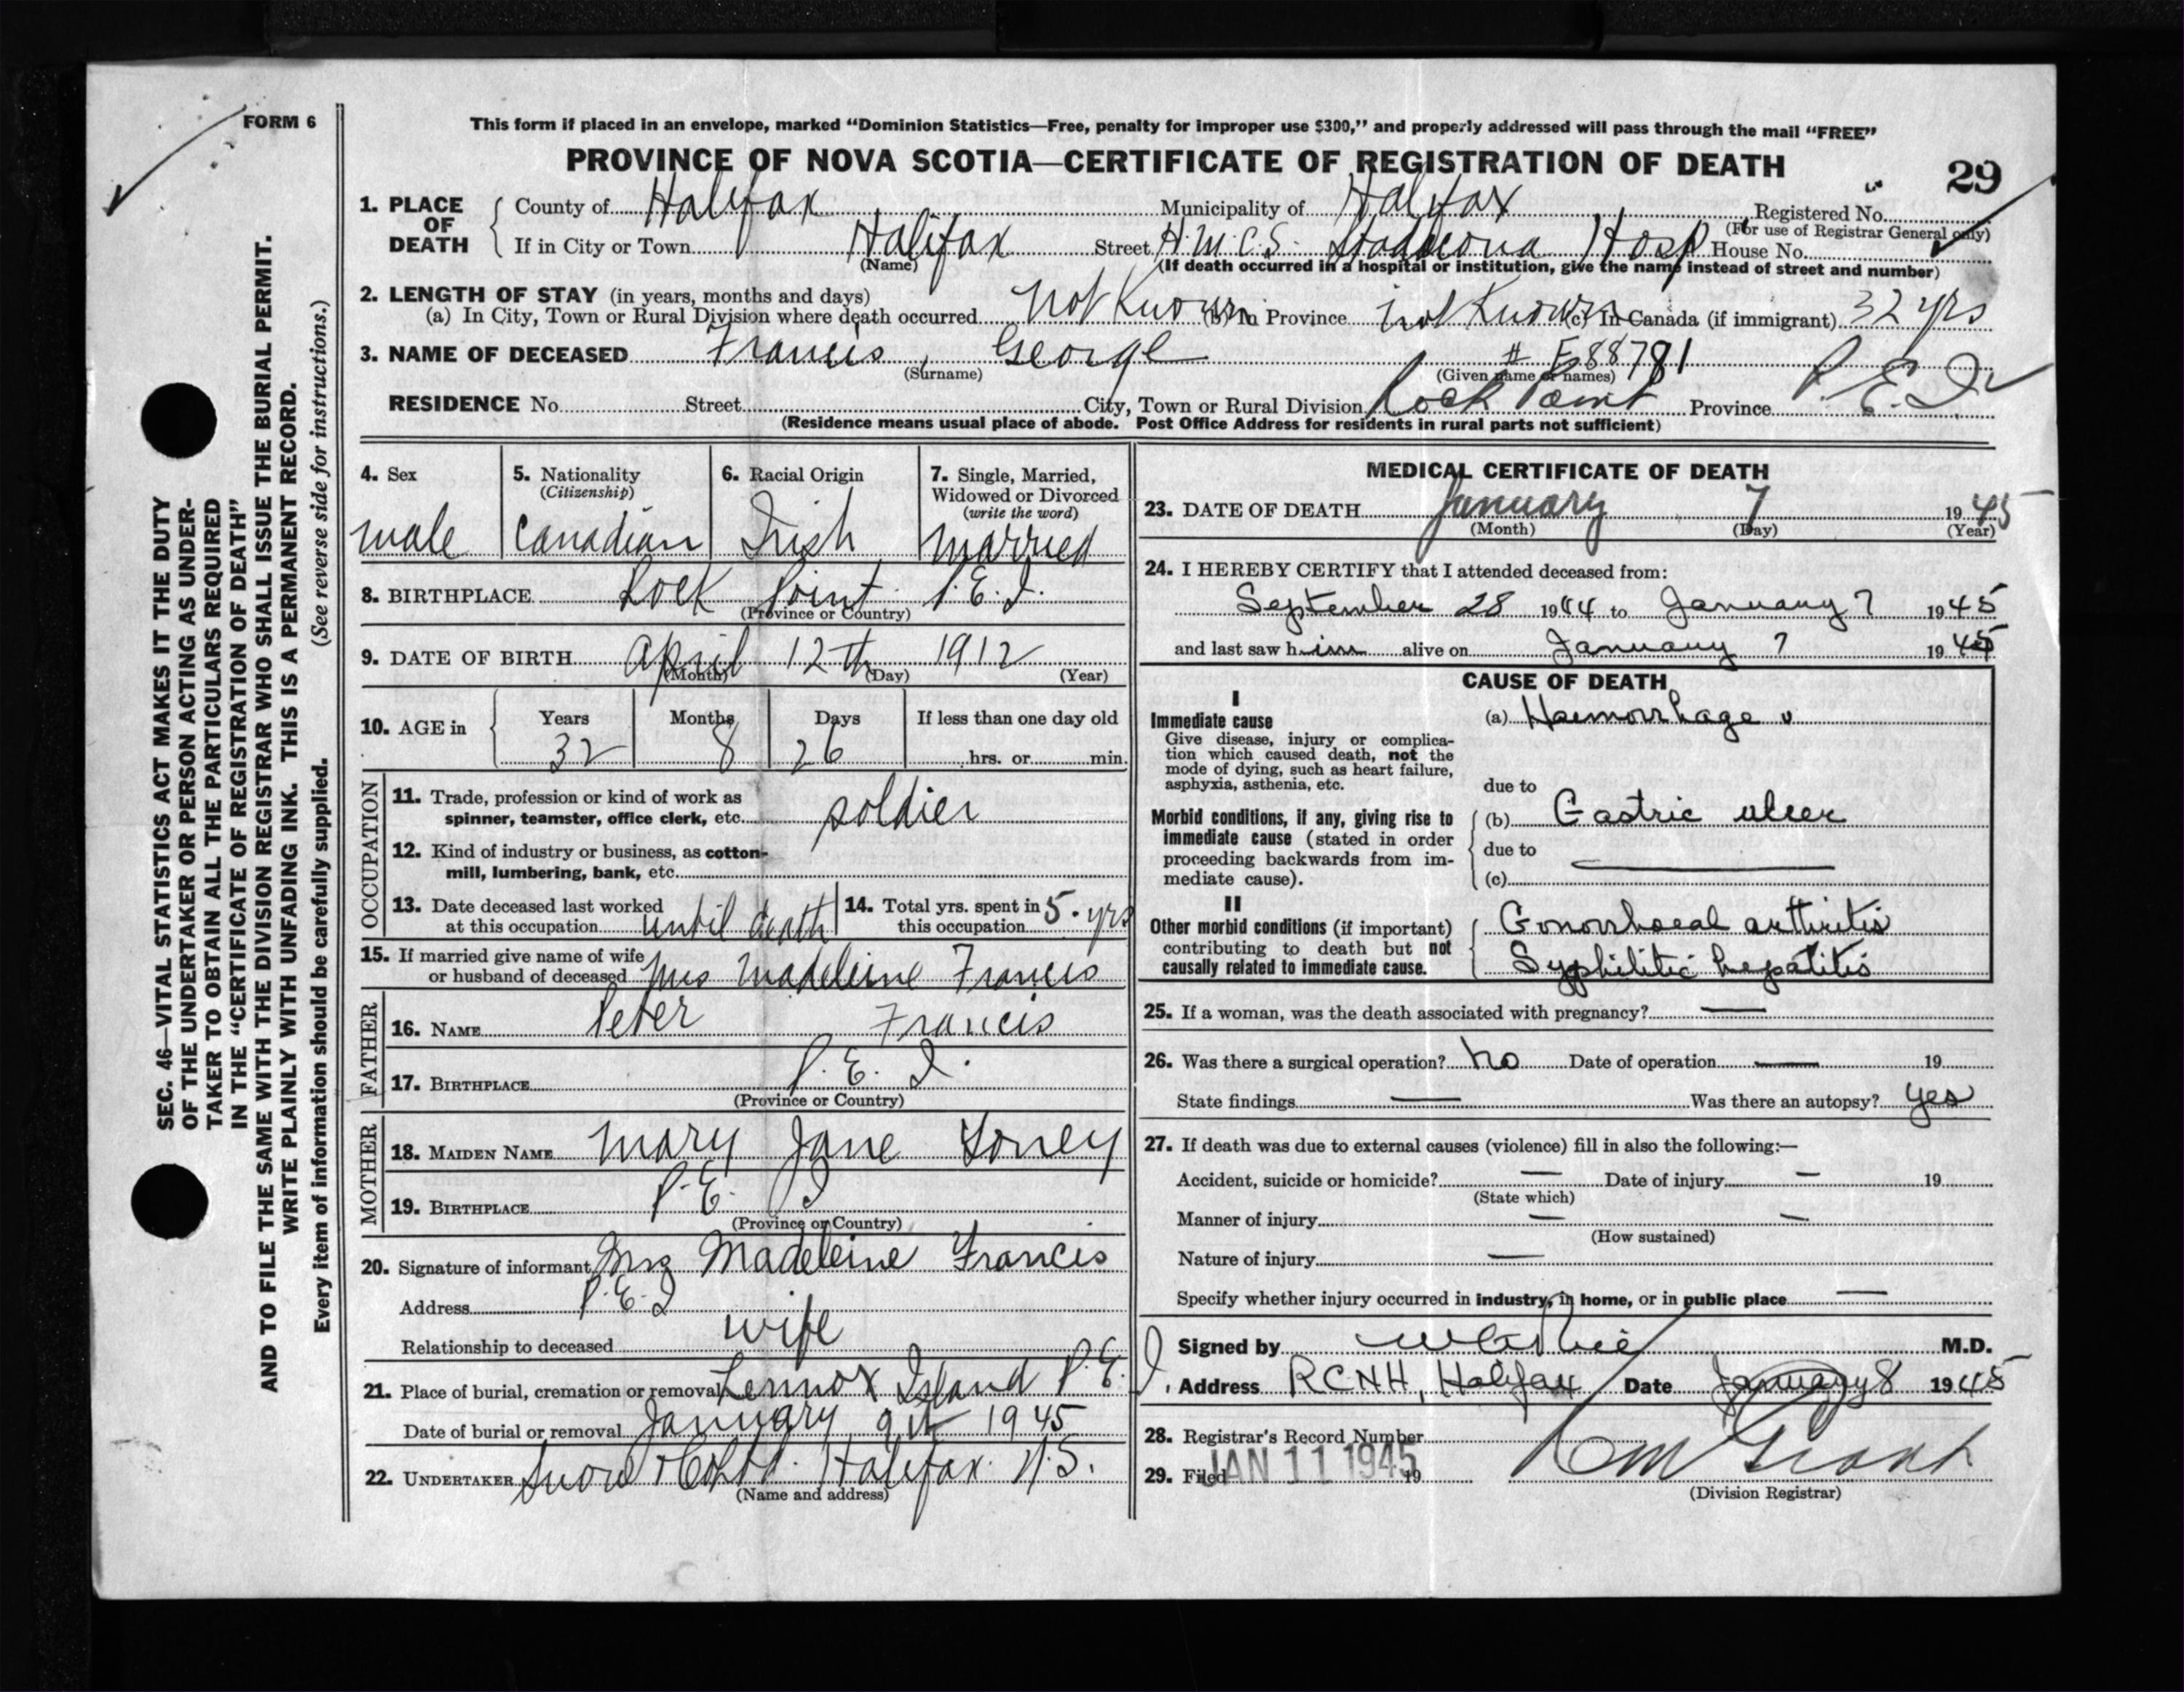 FORM 6
This form if placed in an envelope, marked “Dominion Statistics—Free, penalty for improper use $300,” and properly addressed will pass through the mail “FREE”
PROVINCE OF NOVA SCOTIA—CERTIFICATE OF REGISTRATION OF DEATH
29
1. PLACE OF DEATH
County of Halifax Municipality of Halifax Registered No.
(For use of Registrar General only)
If in City or Town Halifax Street H.M.C.S. Stadacona Hosp House No.
(Name)
(If death occurred in a hospital or institution, give the name instead of street and number)
2. LENGTH OF STAY (in years, months and days)
(a) In City, Town or Rural Division where death occurred not Known (b) In Province not Known (c) In Canada (if immigrant) 32 yrs
3. NAME OF DECEASED Francis, George # F88781
(Surname) (Given name or names)
RESIDENCE No. Street City, Town or Rural Division Rock Point Province P.E.I
(Residence means usual place of abode. Post Office Address for residents in rural parts not sufficient)
4. Sex
male
5. Nationality
(Citizenship)
Canadian
6. Racial Origin
Irish
7. Single, Married, Widowed or Divorced
(write the word)
Married
8. BIRTHPLACE Rock Point P.E.I.
(Province or Country)
9. DATE OF BIRTH April 12th 1912
(Month) (Day) (Year)
10. AGE in
Years Months Days If less than one day old
32 8 26 hrs. or min.
OCCUPATION
11. Trade, profession or kind of work as
spinner, teamster, office clerk, etc. soldier
12. Kind of industry or business, as cotton-
mill, lumbering, bank, etc.
13. Date deceased last worked
at this occupation until death
14. Total yrs. spent in
this occupation 5. yrs
15. If married give name of wife
or husband of deceased Mrs Madeleine Francis
FATHER
16. NAME Peter Francis
17. BIRTHPLACE P. E. I.
(Province or Country)
MOTHER
18. MAIDEN NAME Mary Jane Toney
19. BIRTHPLACE P. E. I
(Province or Country)
20. Signature of informant Mrs Madeleine Francis
Address P.E.I
Relationship to deceased wife
21. Place of burial, cremation or removal Lennox Island P.E.I
Date of burial or removal January 9th 1945
22. UNDERTAKER Snow & Co Ltd. Halifax N.S.
(Name and address)
MEDICAL CERTIFICATE OF DEATH
23. DATE OF DEATH January 7 1945
(Month) (Day) (Year)
24. I HEREBY CERTIFY that I attended deceased from:
September 28 1944 to January 7 1945
and last saw him alive on January 7 1945
CAUSE OF DEATH
I
Immediate cause
Give disease, injury or complica-
tion which caused death, not the
mode of dying, such as heart failure,
asphyxia, asthenia, etc.
(a) Haemorrhage
due to
Morbid conditions, if any, giving rise to
immediate cause (stated in order
proceeding backwards from im-
mediate cause).
(b) Gastric ulcer
due to
(c)
II
Other morbid conditions (if important)
contributing to death but not
causally related to immediate cause.
Gonorrhoeal arthritis
Syphilitic hepatitis
25. If a woman, was the death associated with pregnancy? —
26. Was there a surgical operation? No Date of operation — 19
State findings — Was there an autopsy? yes
27. If death was due to external causes (violence) fill in also the following:—
Accident, suicide or homicide? — Date of injury — 19
(State which)
Manner of injury — —
(How sustained)
Nature of injury —
Specify whether injury occurred in industry, in home, or in public place —
Signed by M.D.
Address RCNH, Halifax Date January 8 1945
28. Registrar's Record Number
29. Filed JAN 11 1945 19
(Division Registrar)
SEC. 46—VITAL STATISTICS ACT MAKES IT THE DUTY
OF THE UNDERTAKER OR PERSON ACTING AS UNDER-
TAKER TO OBTAIN ALL THE PARTICULARS REQUIRED
IN THE “CERTIFICATE OF REGISTRATION OF DEATH”
AND TO FILE THE SAME WITH THE DIVISION REGISTRAR WHO SHALL ISSUE THE BURIAL PERMIT.
WRITE PLAINLY WITH UNFADING INK. THIS IS A PERMANENT RECORD.
Every item of information should be carefully supplied. (See reverse side for instructions.)